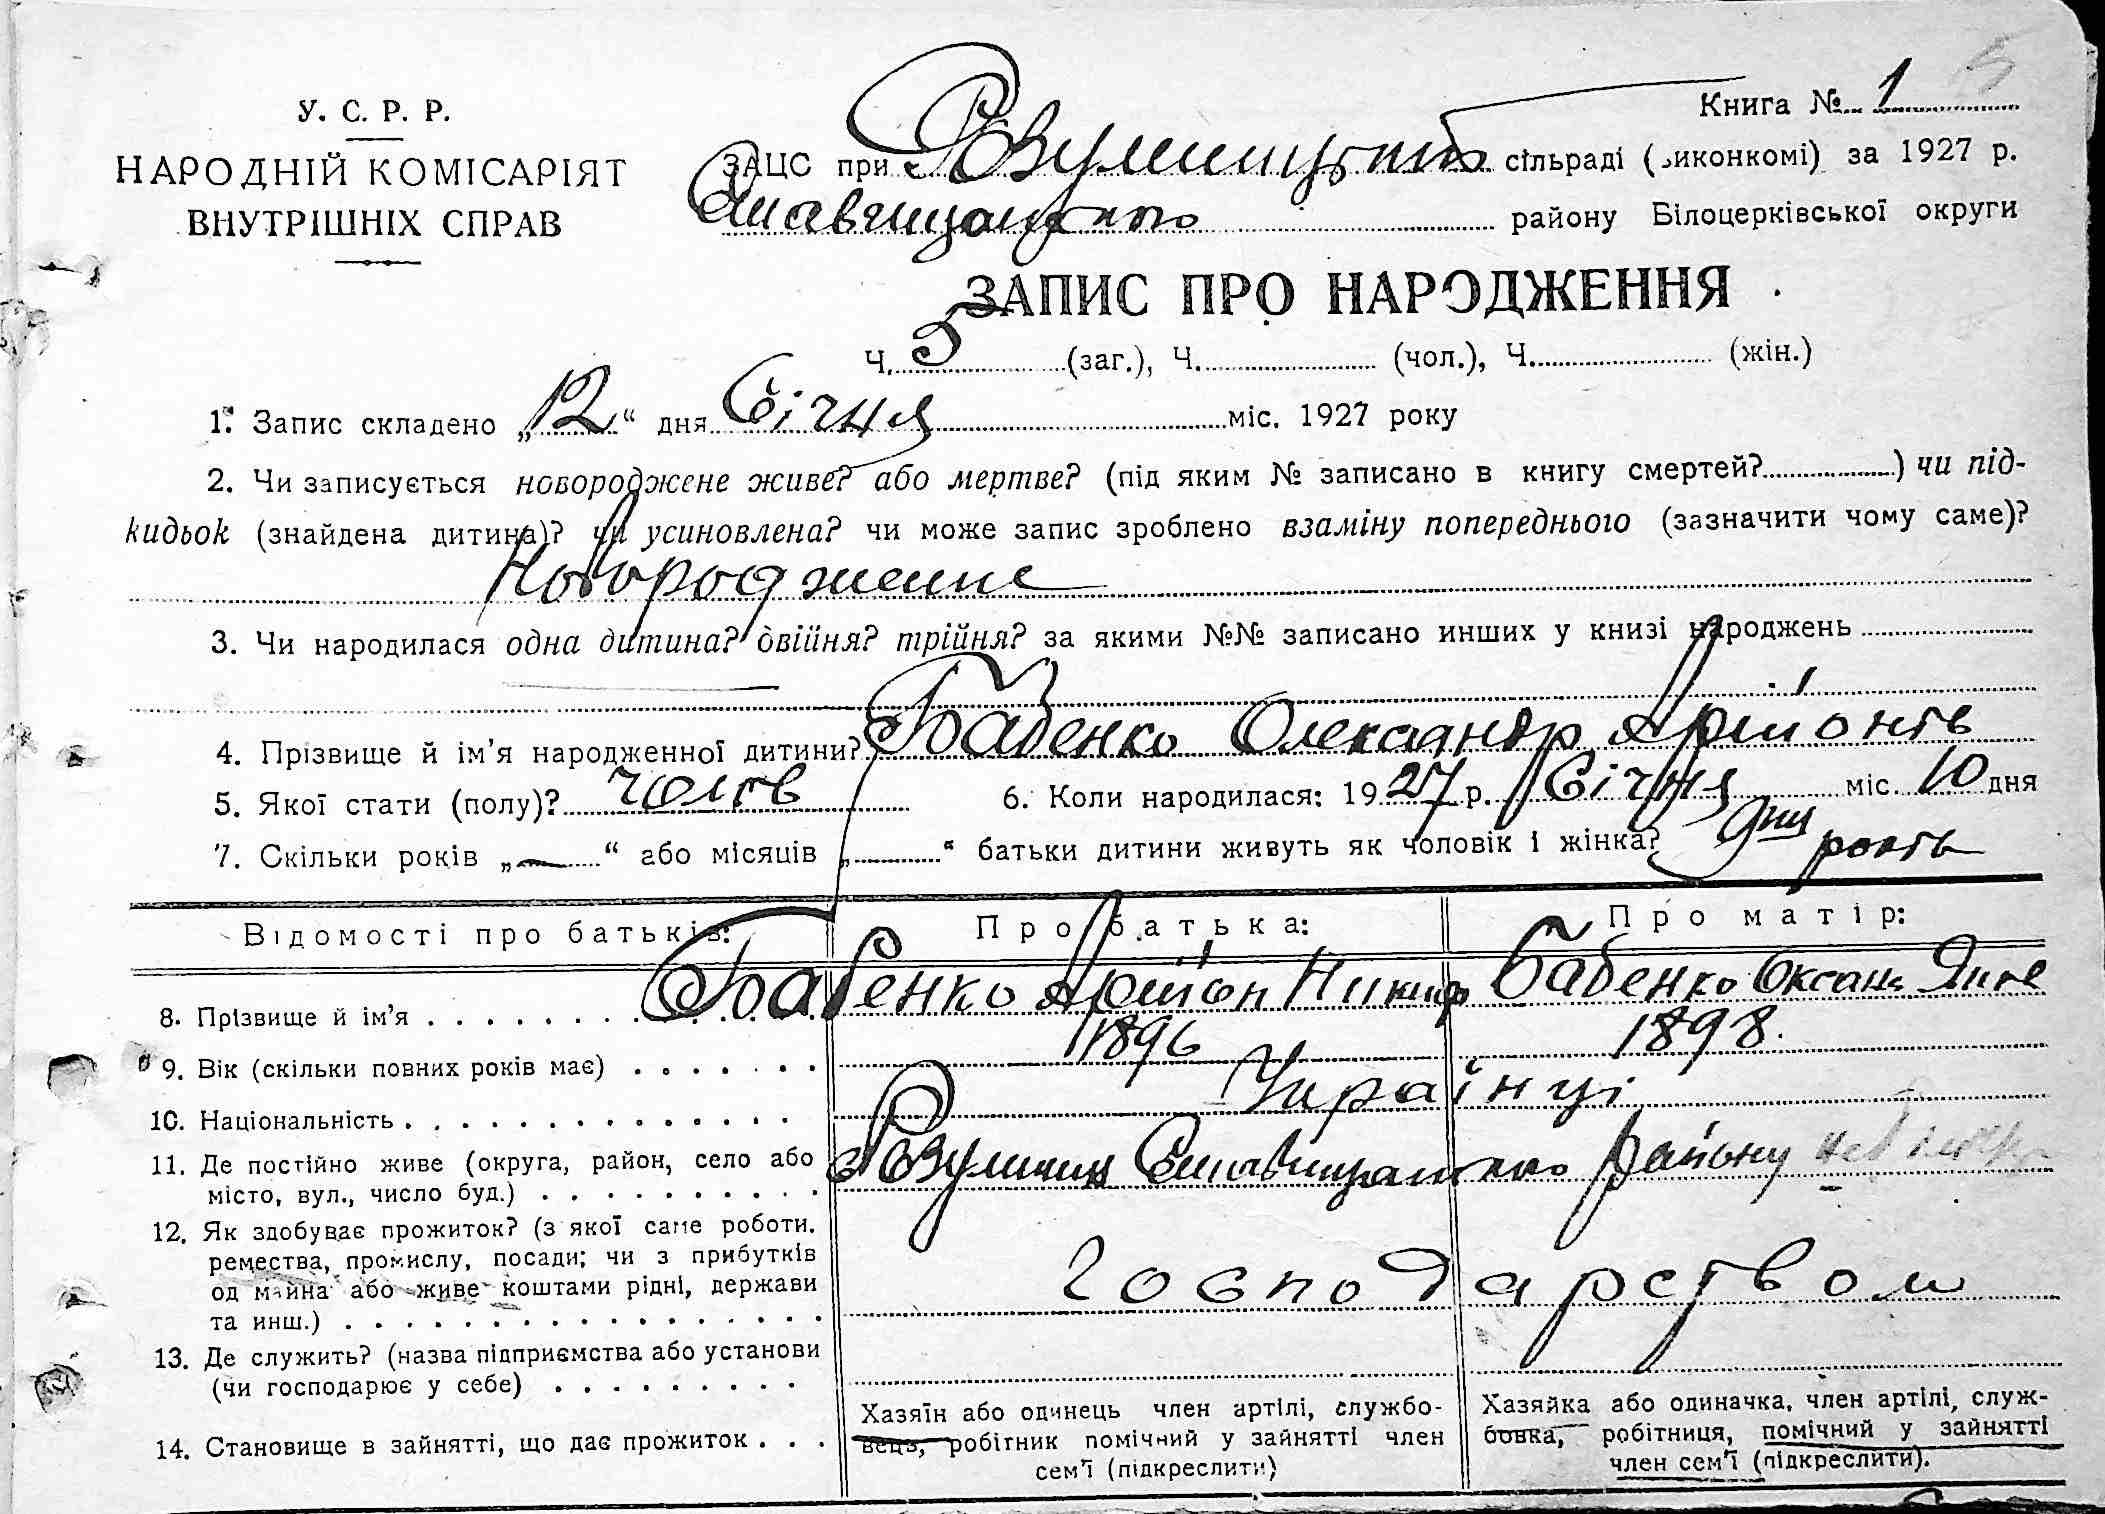 У. С. Р. Р.
НАРОДНІЙ КОМІСАРІЯТ
ВНУТРІШНІХ СПРАВ
Книга № 1
ЗАЦС при сільраді (виконкомі) за 1927 р.
району Білоцерківської округи
ЗАПИС ПРО НАРОДЖЕННЯ
Ч. 5 (заг.), Ч. (чол.), Ч. (жін.)
1. Запис складено „12“ дня Січня міс. 1927 року
2. Чи записується новороджене живе? або мертве? (під яким № записано в книгу смертей? ) чи під-
кидьок (знайдена дитина)? чи усиновлена? чи може запис зроблено взаміну попереднього (зазначити чому саме)?
Новороджене
3. Чи народилася одна дитина? двійня? трійня? за якими №№ записано инших у книзі народжень
4. Прізвище й ім’я народженної дитини? Бабенко Олександр
5. Якої стати (полу)? чолов 6. Коли народилася: 1927 р. Січня міс. 10 дня
7. Скільки років „—“ або місяців „ “ батьки дитини живуть як чоловік і жінка? років
Відомості про батьків: Про батька: Про матір:
8. Прізвище й ім’я Бабенко Бабенко Оксана
9. Вік (скільки повних років має) 1896 1898.
10. Національність Українці
11. Де постійно живе (округа, район, село або
місто, вул., число буд.) району
12. Як здобуває прожиток? (з якої саме роботи,
ремества, промислу, посади; чи з прибутків
од майна або живе коштами рідні, держави
та инш.) Господарством
13. Де служить? (назва підприємства або установи
(чи господарює у себе)
14. Становище в зайнятті, що дає прожиток
Хазяїн або одинець член артілі, службо-
вець, робітник помічний у зайнятті член
сем’ї (підкреслити)
Хазяйка або одиначка, член артілі, служ-
бовка, робітниця, помічний у зайнятті
член сем’ї (підкреслити).